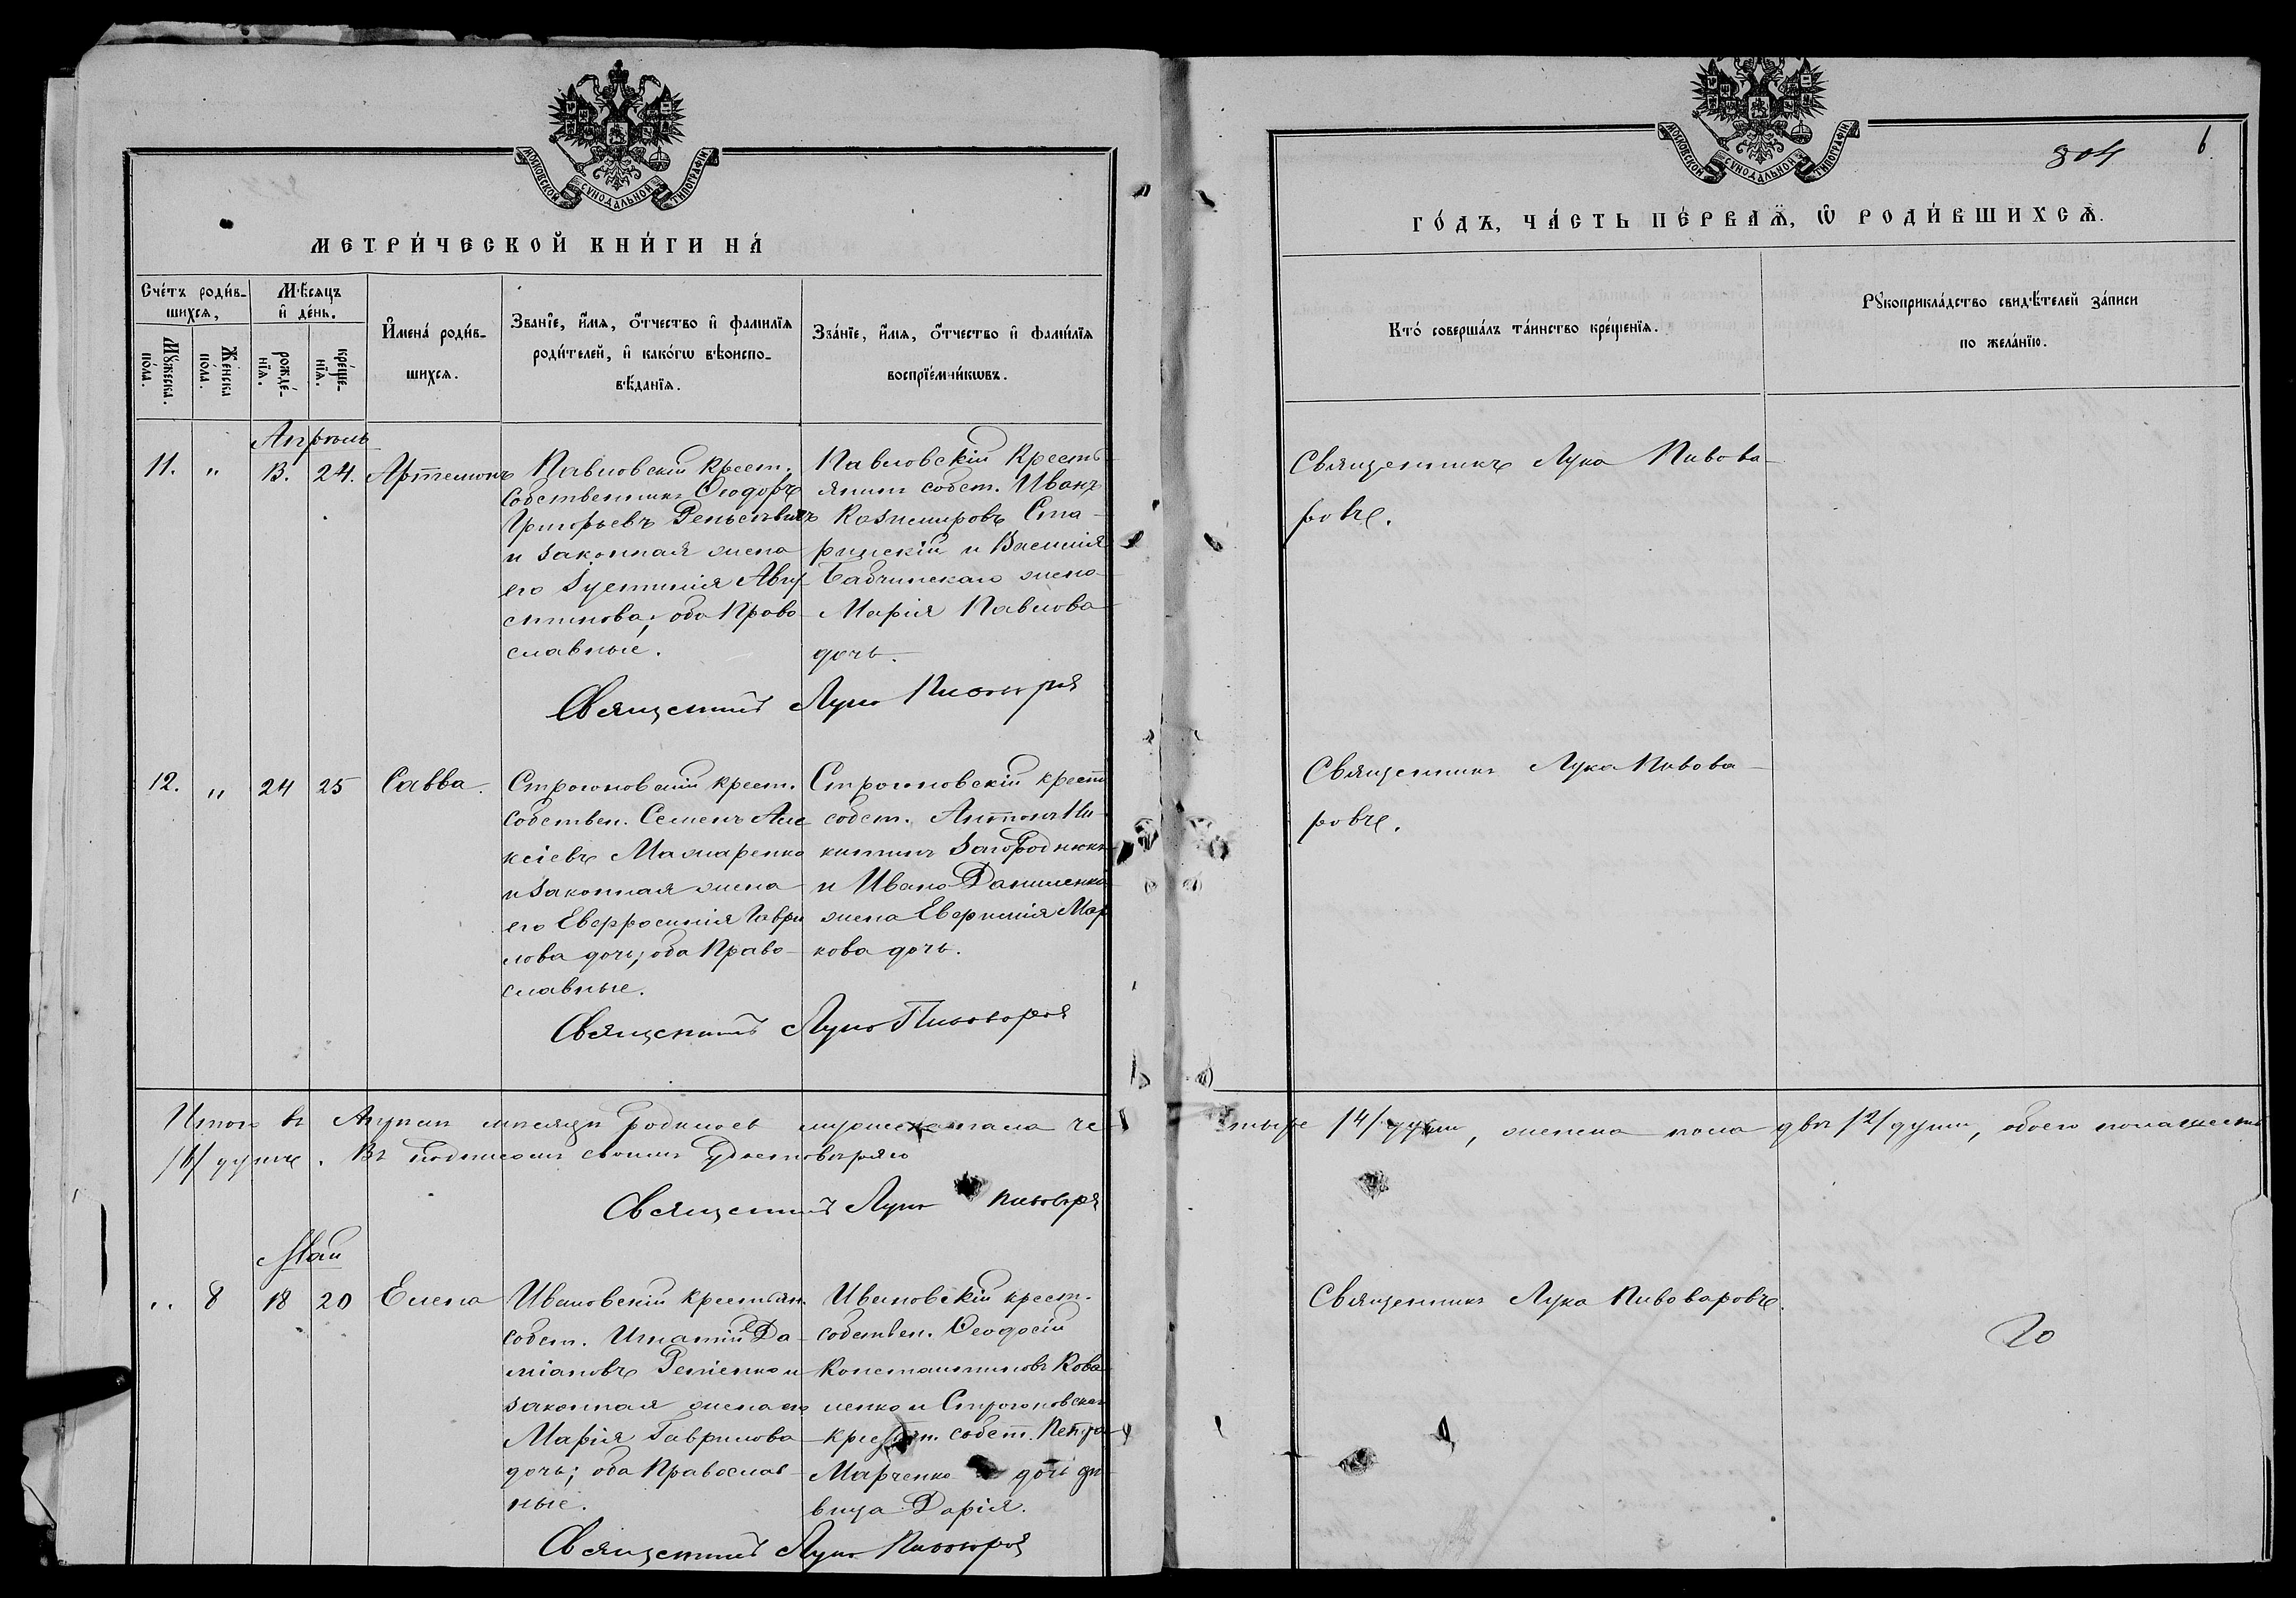 МОСКОВСКОЙ СѴНОДАЛЬНОЙ ТИПОГРАФІИ
МЕТРИ́ЧЕСКОЙ КНИ́ГИ НА́
Сче́тъ роди́в-
шихся,
Мѣ́сяцъ
и҆ де́нь.
Мꙋ́жеска
по́ла.
Же́нска
по́ла.
рожде́-
нїя.
креще́-
нїя.
И҆мена́ роди́в-
шихся.
Зва́нїе, и҆́мя, ѻ҆́тчество и҆ фами́лїя
роди́телей, и҆ како́гѡ вѣроиспо-
вѣ́данїя.
Зва́нїе, и҆́мя, ѻ҆́тчество и҆ фами́лїя
воспрїе́мникѡвъ.
Апрѣль
11. " В. 24. Артемонъ
Павловскій крест.
Собственникъ Ѳеодоръ
Григорьевъ
и законная жена
его Іустинія Авгу-
стинова; оба Право-
славные.
Павловскій кресть-
янинъ собст. Иванъ
Казимировъ Ста-
ринскій и Василія
Бабчинскаго жена
Марія Павлова
дочь.
Священникъ Лука Пивоваровъ
12. " 24 25 Савва.
Строгоновскій крест.
собствен. Семенъ Але-
ксіевъ Мажаренко
и законная жена
его Евфросинія Гаври-
лова дочь; оба Право-
славные.
Строгоновскій крест.
собст. Антонъ Ни-
китинъ Загороднюкъ
и Ивана Даниленка
жена Евфимія Мар-
кова дочь.
Священникъ Лука Пивоваровъ
Итого въ Апрѣлѣ мѣсяцѣ родилось мужеска пола че-
/6/ душъ. Въ подписомъ своимъ удостовѣряю
Священникъ Лука Пивоваровъ
Май
" 8 18 20 Елена
Ивановскій крестьян.
собст. Игнатій Да-
міановъ и
законная жена его
Марія Гаврилова
дочь; оба Православ-
ные.
Ивановскій крест.
собствен. Ѳеодосій
Константиновъ Кова-
ленко и Строгоновскаго
крестьян. собст. Петра
Марченко дочь дѣ-
вица Дарія.
Священникъ Лука Пивоваровъ
МОСКОВСКОЙ СѴНОДАЛЬНОЙ ТИПОГРАФІИ
804 6
ГО́ДЪ, ЧА́СТЬ ПЕ́РВАЯ, Ѡ҆ РОДИ́ВШИХСЯ.
Кто́ соверша́лъ та́инство креще́нїя.
Рꙋкоприкла́дство свидѣ́телей за́писи
по жела́нїю.
Священникъ Лука Пивова-
ровъ.
Священникъ Лука Пивова-
ровъ.
тыре /4/ души, женска пола двѣ /2/ души, обоего пола шесть
Священникъ Лука Пивоваровъ.
20